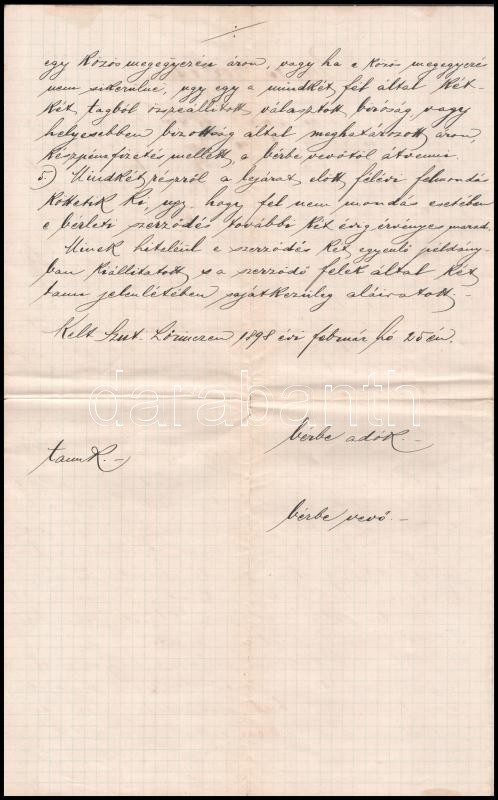 egy közös megegyezési áron, vagy ha e közös megegyezés
nem sikerülne, ugy egy a mindkét fél által két-
két tagból összeállitott választott biróság, vagy
helyesebben bizottság által meghatározott áron,
készpénzfizetés mellett, a bérbe vevőtől átvenni.
5) Mindkét részről a lejárat előtt félévi felmondás
köttetik ki, ugy, hogy fel nem mondás esetében
e bérleti szerződés további két évig érvényes marad.
Minek hiteléül e szerződés két egyenlő példány-
ban kiállitatott s a szerződő felek által két
tanu jelenlétében sajátkezüleg aláiratott.-
Kelt Szt. Lőrinczen 1898 évi február hó 25én.
darabanth
bérbe adók.-
tanuk.-
bérbe vevő.-